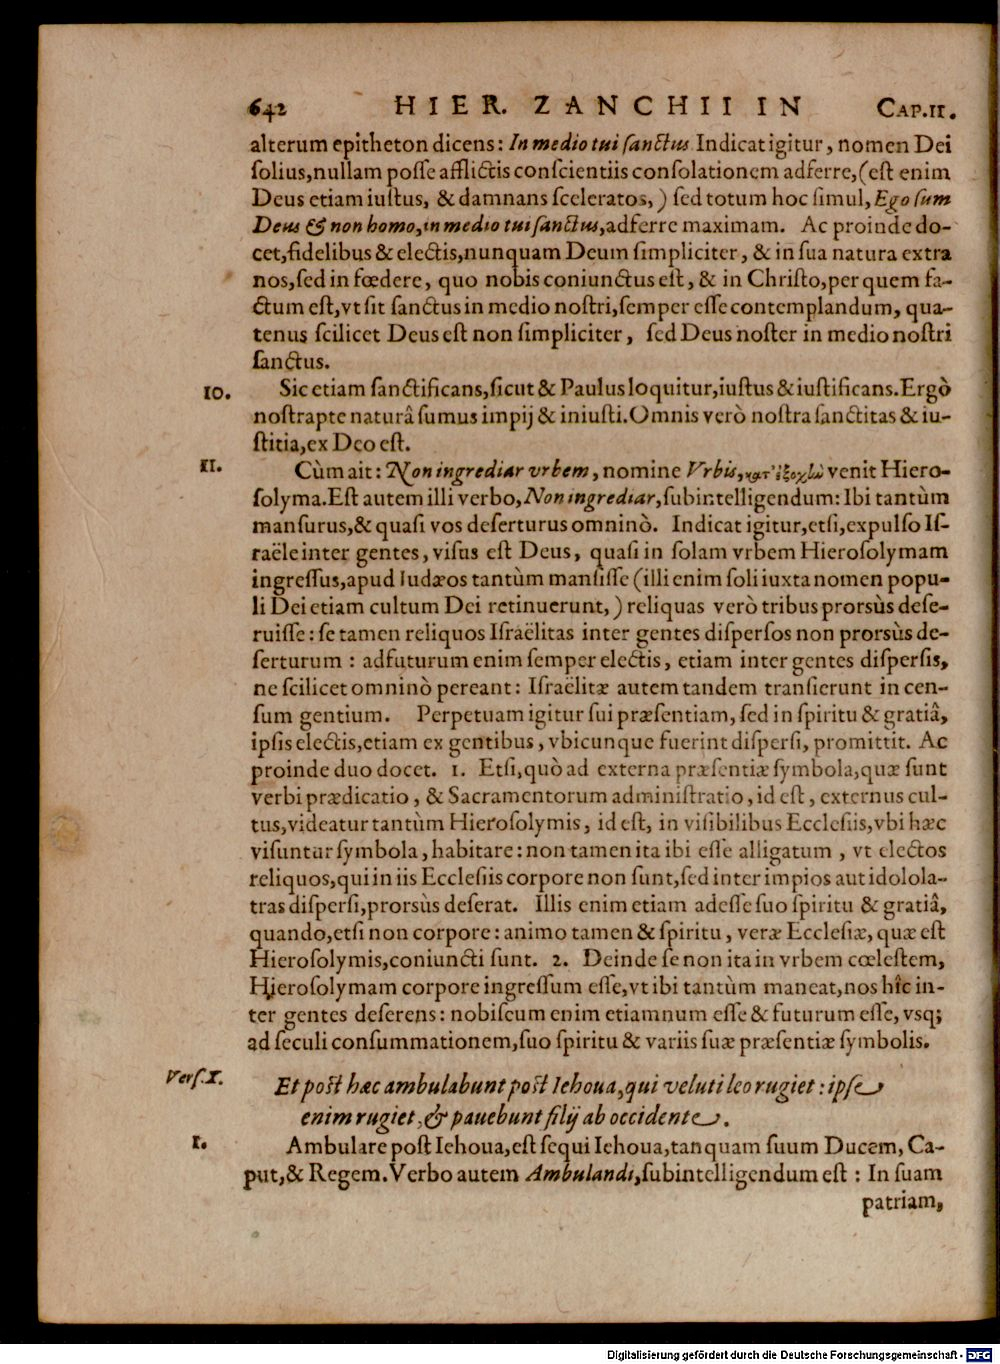 642 HIER. ZANCHII IN CAP.II.
alterum epitheton dicens: In medio tui sanctus Indicat igitur, nomen Dei
solius, nullam posse afflictis conscientiis consolationem adferre, (est enim
Deus etiam iustus, & damnans sceleratos,) sed totum hoc simul, Ego sum
Deus & non homo, in medio tui sanctus, adferre maximam. Ac proinde do-
cet, fidelibus & electis, nunquam Deum simpliciter, & in sua natura extra
nos, sed in fœdere, quo nobis coniunctus est, & in Christo, per quem fa-
ctum est, vt sit sanctus in medio nostri, semper esse contemplandum, qua-
tenus scilicet Deus est non simpliciter, sed Deus noster in medio nostri
sanctus.
10. Sic etiam sanctificans, sicut & Paulus loquitur, iustus & iustificans. Ergò
nostrapte naturâ sumus impij & iniusti. Omnis verò nostra sanctitas & iu-
stitia, ex Deo est.
11. Cùm ait: Non ingrediar vrbem, nomine Vrbis, κατ' ἐξοχὴν venit Hiero-
solyma. Est autem illi verbo, Non ingrediar, subintelligendum: Ibi tantùm
mansurus, & quasi vos deserturus omninò. Indicat igitur, etsi, expulso Is-
raële inter gentes, visus est Deus, quasi in solam vrbem Hierosolymam
ingressus, apud Iudæos tantùm mansisse (illi enim soli iuxta nomen popu-
li Dei etiam cultum Dei retinuerunt,) reliquas verò tribus prorsùs dese-
ruisse: se tamen reliquos Israëlitas inter gentes dispersos non prorsùs de-
serturum: adfuturum enim semper electis, etiam inter gentes dispersis,
ne scilicet omninò pereant: Israëlitæ autem tandem transierunt in cen-
sum gentium. Perpetuam igitur sui præsentiam, sed in spiritu & gratiâ,
ipsis electis, etiam ex gentibus, vbicunque fuerint dispersi, promittit. Ac
proinde duo docet. 1. Etsi, quò ad externa præsentiæ symbola, quæ sunt
verbi prædicatio, & Sacramentorum administratio, id est, externus cul-
tus, videatur tantùm Hierosolymis, id est, in visibilibus Ecclesiis, vbi hæc
visuntur symbola, habitare: non tamen ita ibi esse alligatum, vt electos
reliquos, qui in iis Ecclesiis corpore non sunt, sed inter impios aut idolola-
tras dispersi, prorsùs deserat. Illis enim etiam adesse suo spiritu & gratiâ,
quando, etsi non corpore: animo tamen & spiritu, veræ Ecclesiæ, quæ est
Hierosolymis, coniuncti sunt. 2. Deinde se non ita in vrbem cœlestem,
Hierosolymam corpore ingressum esse, vt ibi tantùm maneat, nos hîc in-
ter gentes deserens: nobiscum enim etiamnum esse & futurum esse, vsq;
ad seculi consummationem, suo spiritu & variis suæ præsentiæ symbolis.
Vers. 1. Et post hæc ambulabunt post Iehoua, qui veluti leo rugiet: ipse
enim rugiet, & pauebunt filij ab occidente.
1. Ambulare post Iehoua, est sequi Iehoua, tanquam suum Ducem, Ca-
put, & Regem. Verbo autem Ambulandi, subintelligendum est: In suam
patriam,
Digitalisierung gefördert durch die Deutsche Forschungsgemeinschaft - DFG